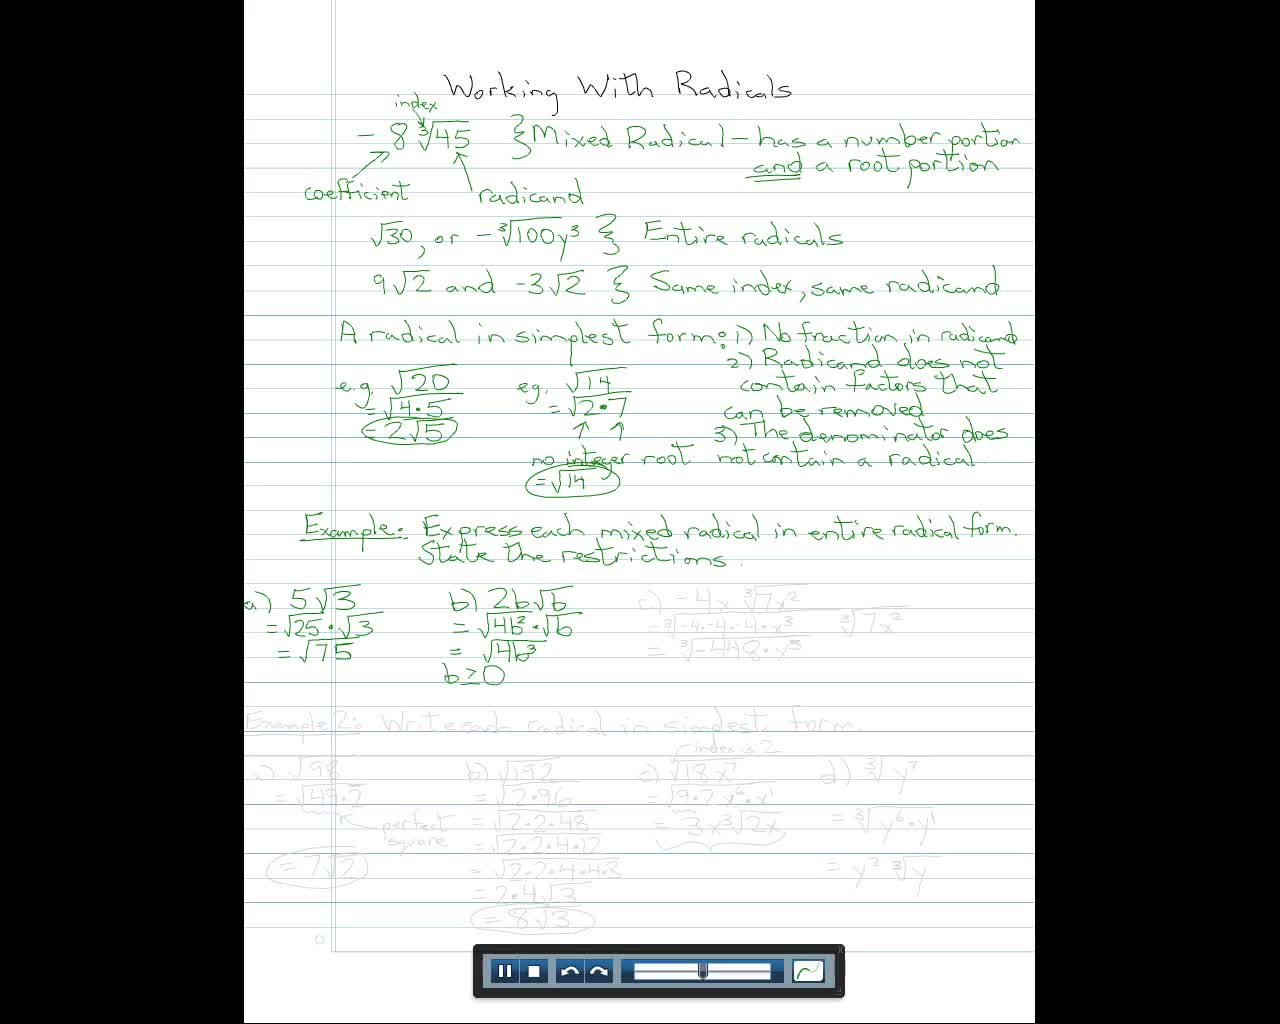 Working With Radicals
index
- 8 ∛45 } Mixed Radical - has a number portion
and a root portion
coefficient radicand
√30, or - ∛100y³ } Entire radicals
9√2 and -3√2 } Same index, same radicand
A radical in simplest form: 1) No fraction in radicand
2) Radicand does not
contain factors that
can be removed
3) The denominator does
not contain a radical.
e.g. √20
= √4·5
= 2√5
eg. √14
= √2·7
no integer root
= √14
Example: Express each mixed radical in entire radical form.
State the restrictions.
a) 5√3
= √25 · √3
= √75
b) 2b√b
= √4b² · √b
= √4b³
b ≥ 0
c) -4x ∛7x²
= ∛-4·-4·-4·x³ ∛7x²
= ∛-448·x⁵
Example 2: Write each radical in simplest form.
a) √98
= √49·2
perfect
square
= 7√2
b) √192
= √2·96
= √2·2·48
= √2·2·4·12
= √2·2·4·4·3
= 2·4√3
= 8√3
index is 2
c) √18x⁷
= √9·2x⁶·x¹
= 3x³√2x
d) ∛y⁷
= ∛y⁶·y¹
= y² ∛y